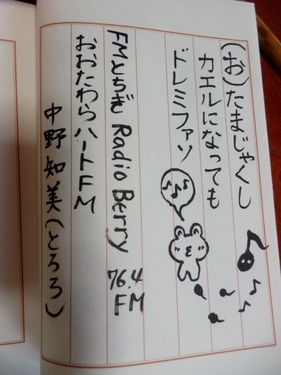 (お)たまじゃくし
カエルになっても
ドレミファソ
FMとちぎ Radio Berry 76.4 FM
おおたわらハートFM
中野知美(とろろ)